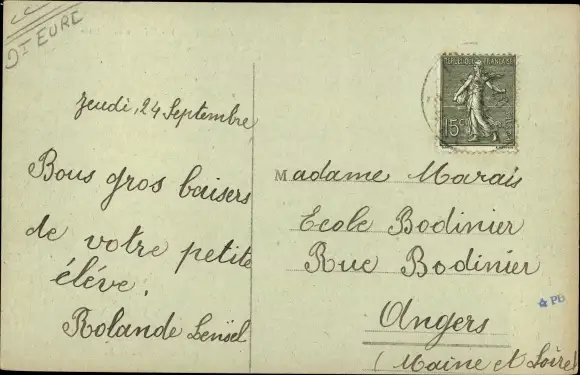 Dt EURE
Jeudi, 24 Septembre
Bons gros baisers
de votre petite
élève.
Rolande Lensel
REPUBLIQUE FRANÇAISE
15c
Madame Marais
Ecole Bodinier
Rue Bodinier
Angers
(Maine et Loire)
PB